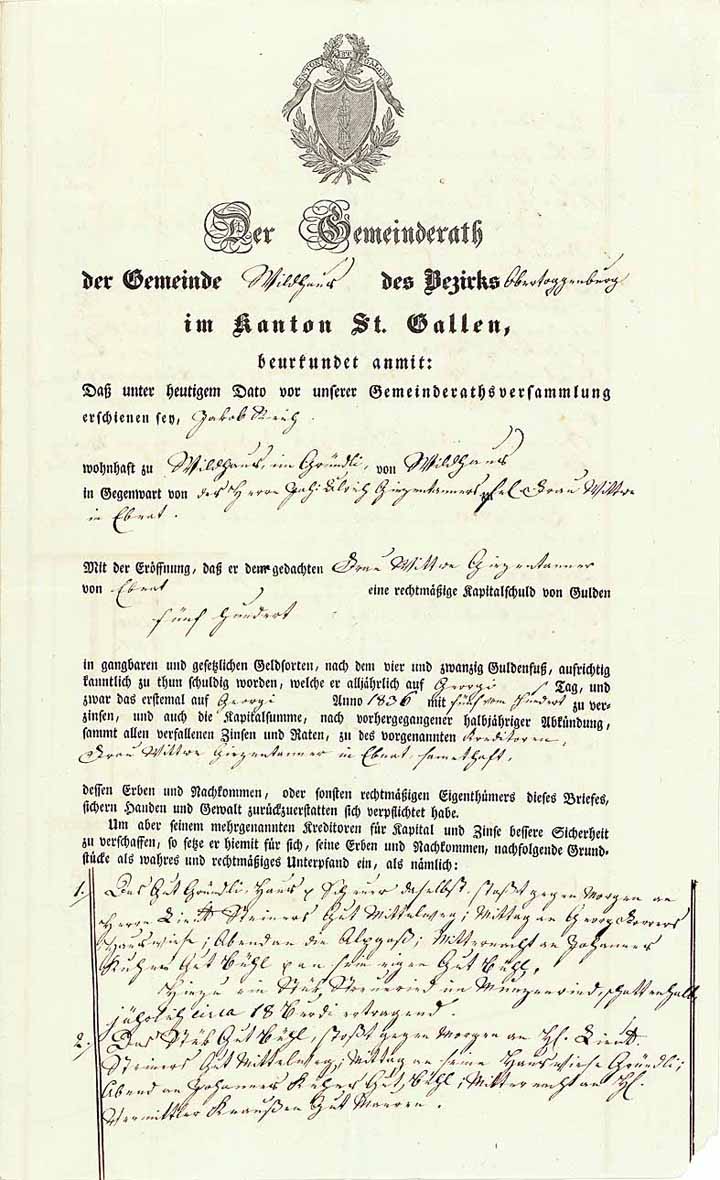 CANTON ST. GALLEN
Der Gemeinderath
der Gemeinde Wildhaus des Bezirks Obertoggenburg
im Kanton St. Gallen,
beurkundet anmit:
Daß unter heutigem Dato vor unserer Gemeinderathsversammlung
erschienen sey, Jakob
wohnhaft zu Wildhaus, im Gründli, von Wildhaus
in Gegenwart von des Herrn Ulrich Giezentanners sel. Frau Wittwe
in Ebnat.
Mit der Eröffnung, daß er dem gedachten Frau Wittwe Giezentanner
von Ebnat eine rechtmäßige Kapitalschuld von Gulden
fünf Hundert
in gangbaren und gesetzlichen Geldsorten, nach dem vier und zwanzig Guldenfuß, aufrichtig
kanntlich zu thun schuldig worden, welche er alljährlich auf Georgi Tag, und
zwar das erstemal auf Georgi Anno 1836 mit fünf vom Hundert zu ver-
zinsen, und auch die Kapitalsumme, nach vorhergegangener halbjähriger Abkündung,
sammt allen verfallenen Zinsen und Raten, zu des vorgenannten Kreditoren,
Frau Wittwe Giezentanner in Ebnat
dessen Erben und Nachkommen, oder sonsten rechtmäßigen Eigenthümers dieses Briefes,
sichern Handen und Gewalt zurückzuerstatten sich verpflichtet habe.
Um aber seinem mehrgenannten Kreditoren für Kapital und Zinse bessere Sicherheit
zu verschaffen, so setze er hiemit für sich, seine Erben und Nachkommen, nachfolgende Grund-
stücke als wahres und rechtmäßiges Unterpfand ein, als nämlich:
1. Das Gut Gründli, Haus & Scheuer daselbst, stoßt gegen Morgen an
Herrn Lieut. Steiners Gut Mittelweg; Mittag an Georg Forrers
Hauswiese; Abend an die Alpgaß; Mitternacht an Johannes
Gut Bühl & an sein eigen Gut Bühl,
Hiezu ein Stük in Munzenried, schattenhalb,
jährlich circa 18 ertragend.
2. Das Stük Gut Bühl, stoßt gegen Morgen an H. Lieut.
Steiners Gut Mittelweg; Mittag an seine Hauswiese Gründli;
Abend an Johannes Gut Bühl; Mitternacht an H.
Vermittler Gut